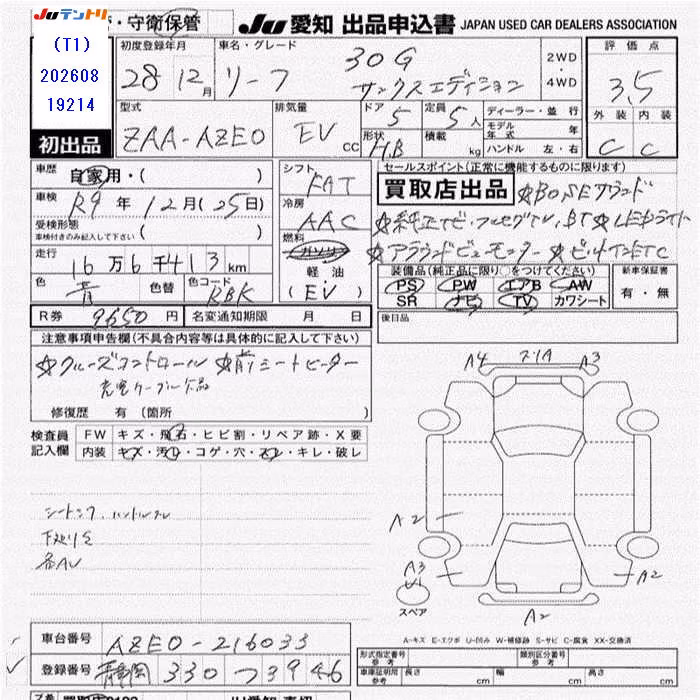 JUテントリ ・守衛保管 JU 愛知 出品申込書 JAPAN USED CAR DEALERS ASSOCIATION
(T1)
202608
19214
初出品
初度登録年月 28年 12月
車名・グレード リーフ 30G
サンクスエディション
2WD
・
4WD
評価点 3.5
外装 内装
C C
型式 ZAA-AZE0
排気量 EV cc
ドア 5 定員 5人
形状 H.B 積載 kg
ディーラー・並行
モデル年式 年
ハンドル 左・右
車歴 自家用・( )
車検 R9年 12月(25日)
受検形態
車検付きのみ記入して下さい ( )
走行 16万6千413km
色 青 色替 色コード RBK
シフト FAT
冷房 AAC
燃料 ガソリン
軽油
(EV)
セールスポイント(正常に機能するものに限ります)
買取店出品 ☆BOSEサウンド
☆純正ナビ・フルセグTV, BT ☆LEDライト
☆アラウンドビューモニター ☆ビルトインETC
装備品(純正品に限り○をつけて下さい)
PS PW エアB AW
SR ナビ TV カワシート
新車保証書
有・無
R券 9650円 名変通知期限 月 日
後日品
注意事項申告欄(不具合内容等は具体的に記入して下さい)
☆クルーズコントロール ☆前シートヒーター
充電ケーブル欠品
修復歴 有 (箇所 )
検査員
記入欄
FW キズ・飛石・ヒビ割・リペア跡・X要
内装 キズ・汚れ・コゲ・穴・スレ・キレ・破レ
シートスレ.ハンドルスレ
下廻りS
各AU
A4 スリA A3
A2
A3
U1
スペア
A2
A2
A-キズ E-エクボ U-凹み W-補修跡 S-サビ C-腐食 XX-交換済
車台番号 AZE0-216033
登録番号 静岡 330 つ 3946
形式指定番号 参考 類別区分番号 参考
車庫証明用 参考 長さ cm 幅 cm 高さ cm